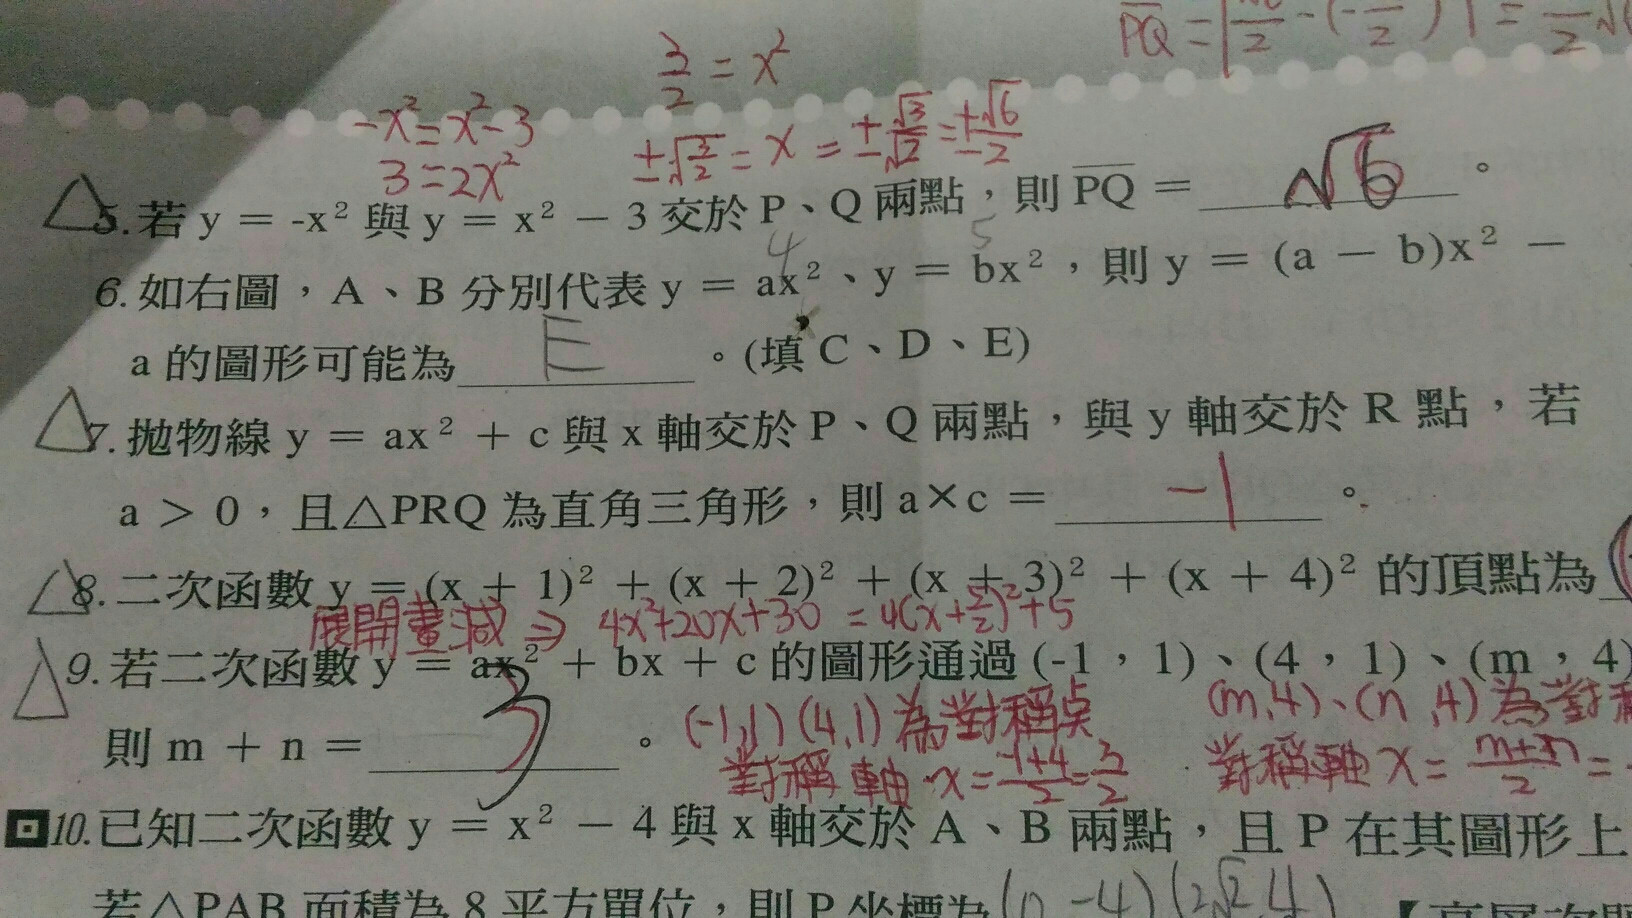 3/2 = x²
-x² = x² - 3
3 = 2x²
±√(3/2) = x = ±√3/√2 = ±√6/2
5. 若 y = -x² 與 y = x² - 3 交於 P、Q 兩點，則 PQ = √6 。
4 5
6. 如右圖，A、B 分別代表 y = ax²、y = bx²，則 y = (a - b)x² -
a 的圖形可能為 E 。(填 C、D、E)
7. 拋物線 y = ax² + c 與 x 軸交於 P、Q 兩點，與 y 軸交於 R 點，若
a > 0，且△PRQ 為直角三角形，則 a×c = -1 。
8. 二次函數 y = (x + 1)² + (x + 2)² + (x + 3)² + (x + 4)² 的頂點為
⇒ 4x²+20x+30 = 4(x+5/2)²+5
9. 若二次函數 y = ax² + bx + c 的圖形通過 (-1，1)、(4，1)、(m，4)
(-1,1) (4,1) 為對稱点
(m,4)、(n,4) 為對稱
則 m + n = 3 。
對稱軸 x = (-1+4)/2 = 3/2
對稱軸 x = (m+n)/2 =
10. 已知二次函數 y = x² - 4 與 x 軸交於 A、B 兩點，且 P 在其圖形上
若△PAB 面積為 8 平方單位，則 P 坐標為 (0,-4) (2√2,4)